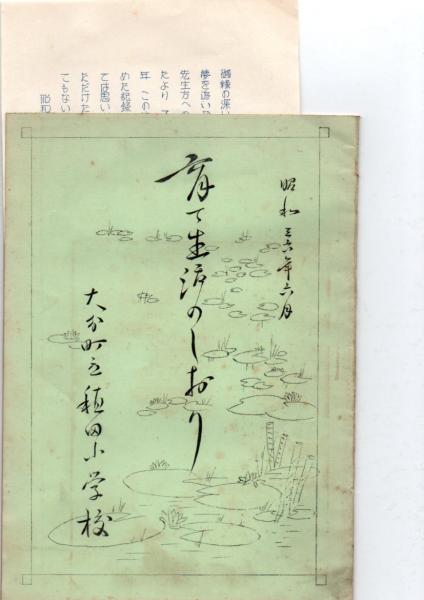 御縁の深い
夢を追い
先生方への
たより
年 この
めた記録
では思い
ただけた
てもない
昭和三六年六月
育て生活のしおり
大分町立稙田小学校